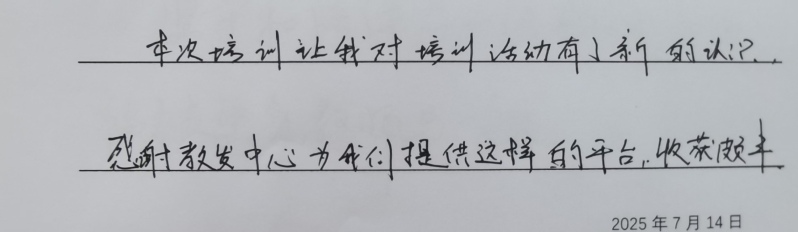 本次培训让我对培训活动有了新的认识.
感谢教发中心为我们提供这样的平台,收获颇丰
2025年7月14日